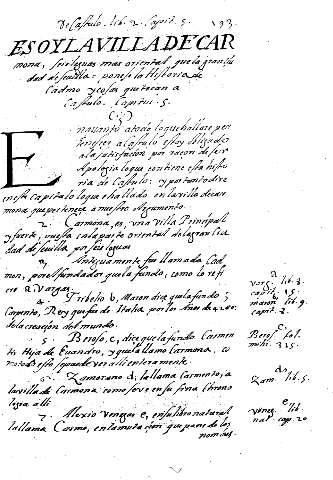 De Castulo. lib. 2. Capit. 5. 193.
ESOY LA VILLA DE CAR
mona, seis leguas mas oriental, que la gran ciu
dad de sevilla: ponese la Historia de
Cadmo y cosas que tocan a
Castulo. Capitu. 5.
En
quanto a todo lo que hallare per
teneciente a Castulo estoy obligado
a la satisfacion por racon de ser
Apologia lo que contiene esta histo
ria de Castulo: y por tanto dire
en este capitulo lo que e hallado en la villa de car
mona que pertenece a nuestro Argumento.
2. Carmona, es, una villa Principal
y fuerte, puesta en la parte oriental de la gran ciu
dad de sevilla por seis leguas
3. Antiguamente fue llamada Cad
mon, por el fundador que la fundo, como lo refi
ere a, Vargas.
4. Trebelio b, Maron dice que la fundo,
Carpento, Rey que fue de Italia, por los Años de 4200.
de la creacion del mundo.
5. Beroso, c, dice que la fundo Carmen
ti Hija de Euandro, y que la llamo Carmona, co
todo esto se puede ver alli enteramente.
6. Zamorano d, la llama Carmento, a
la villa de Carmona como se ve en su
logia alli
7. Alexio Venegas e, en su libro natural
la llama Carmo, en la muta cion que pone de los
nombres.
a
varg. lib. 3.
capit. 15.
b
maron lib. 9.
capit. 2.
c
Beros. fol.
mihi. 315.
d
Zam. lib. 5.
e
vene. lib.
nat. cap. 20